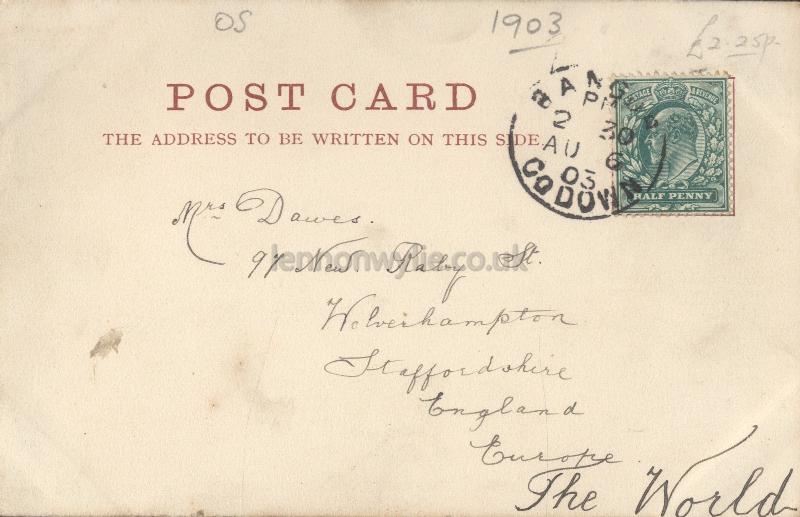 OS
1903
£2.25p.
POST CARD
THE ADDRESS TO BE WRITTEN ON THIS SIDE
BANGOR
PM
2 30
AU 6
03
CO DOWN
POSTAGE & REVENUE
HALF PENNY
Mrs Dawes.
97 New Raby St.
lennonwylie.co.uk
Wolverhampton
Staffordshire
England
Europe.
The World